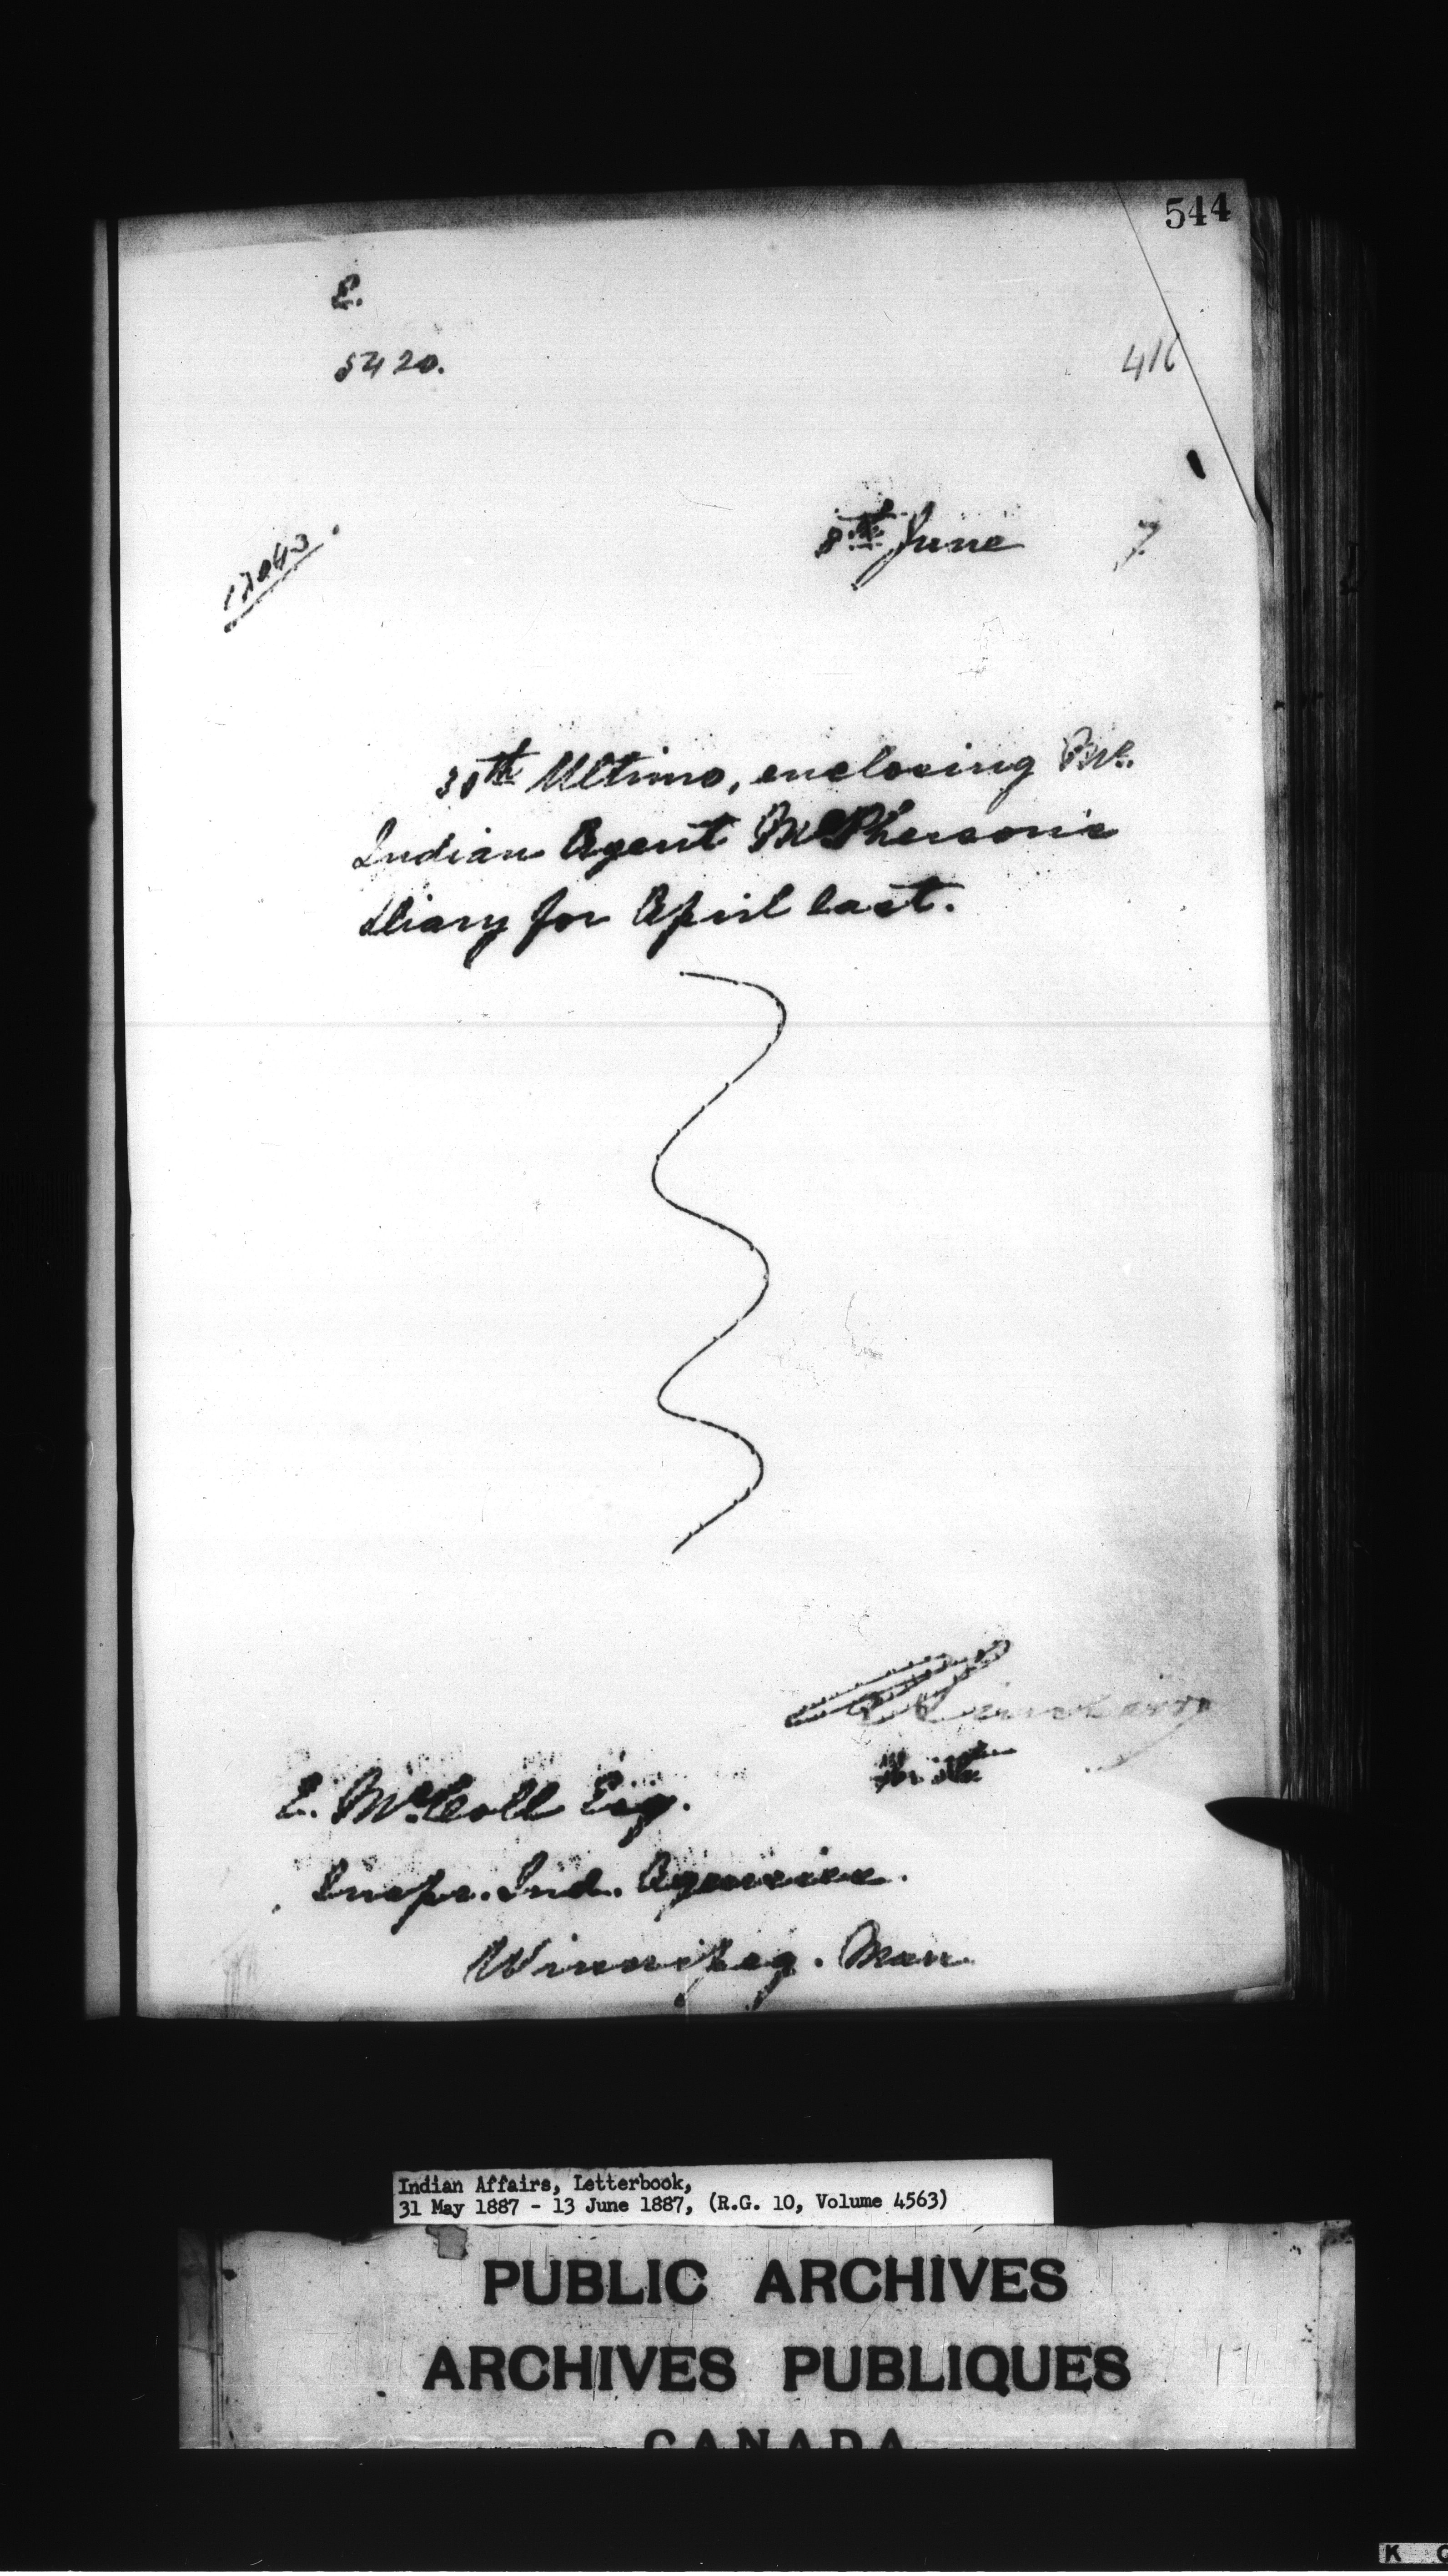 544
E.
5420.
416
8th June 7
17043.
30th Ultimo, enclosing Mr.
Indian Agent McPherson's
diary for April last.
E. McColl Esq.
Inspr. Ind. Agencies.
Winnipeg. Man.
Indian Affairs, Letterbook,
31 May 1887 - 13 June 1887, (R.G. 10, Volume 4563)
PUBLIC ARCHIVES
ARCHIVES PUBLIQUES
CANADA
K